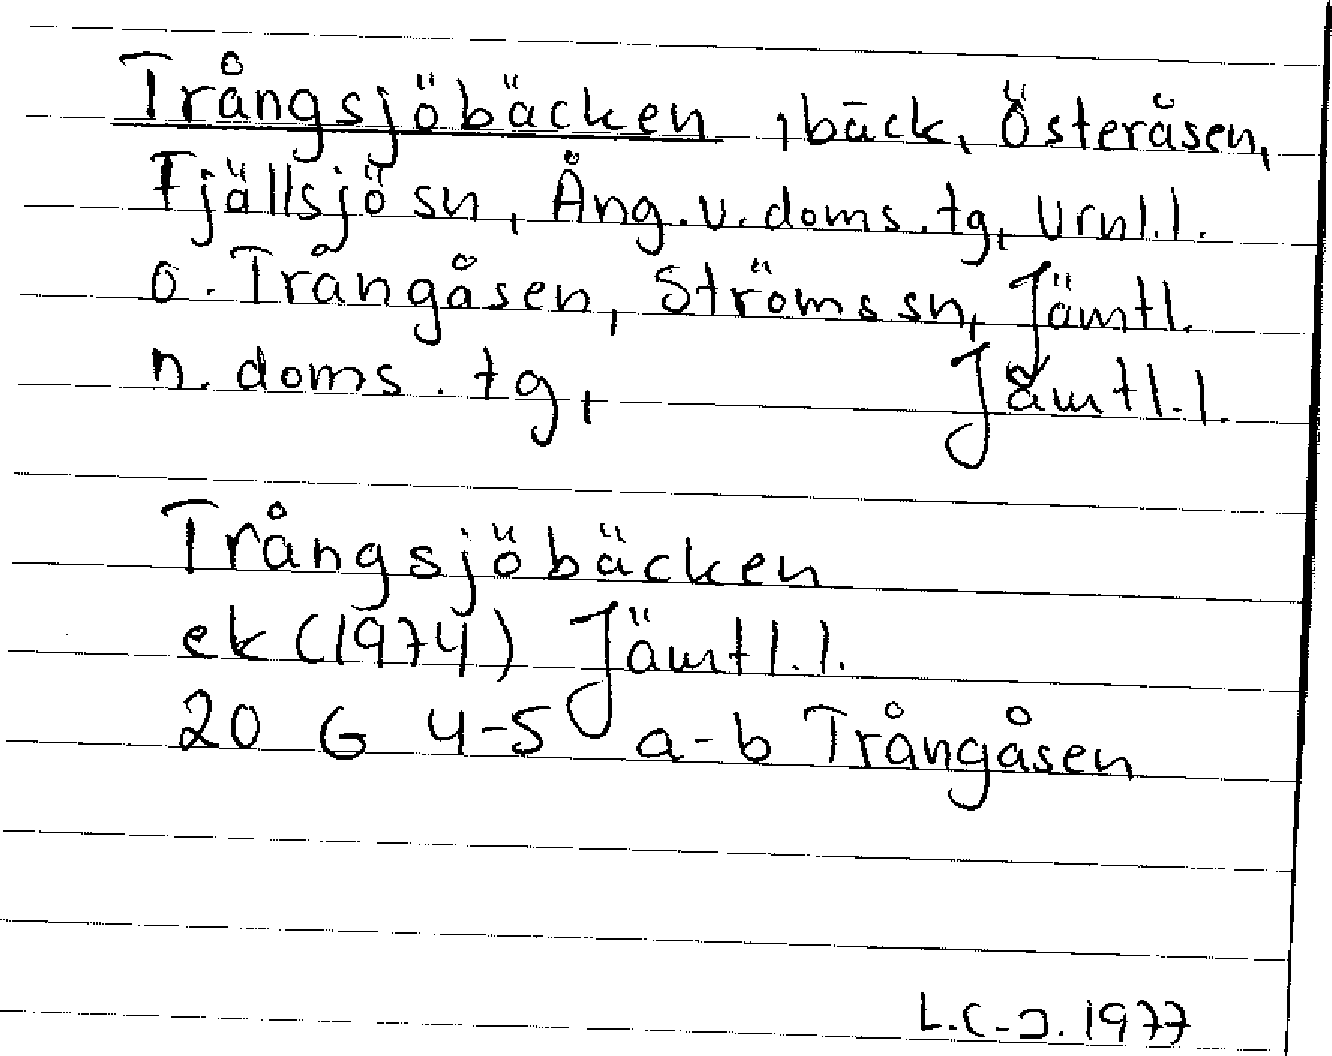 Trångsjöbäcken, bäck, Österåsen,
Fjällsjö sn, Ång. v. doms. tg, Vrnl. l.
o. Trångåsen, Ströms sn, Jämtl.
n. doms. tg, Jämtl. l.
Trångsjöbäcken
ek (1974) Jämtl. l.
20 G 4-5 a-b Trångåsen
L.C-J. 1977